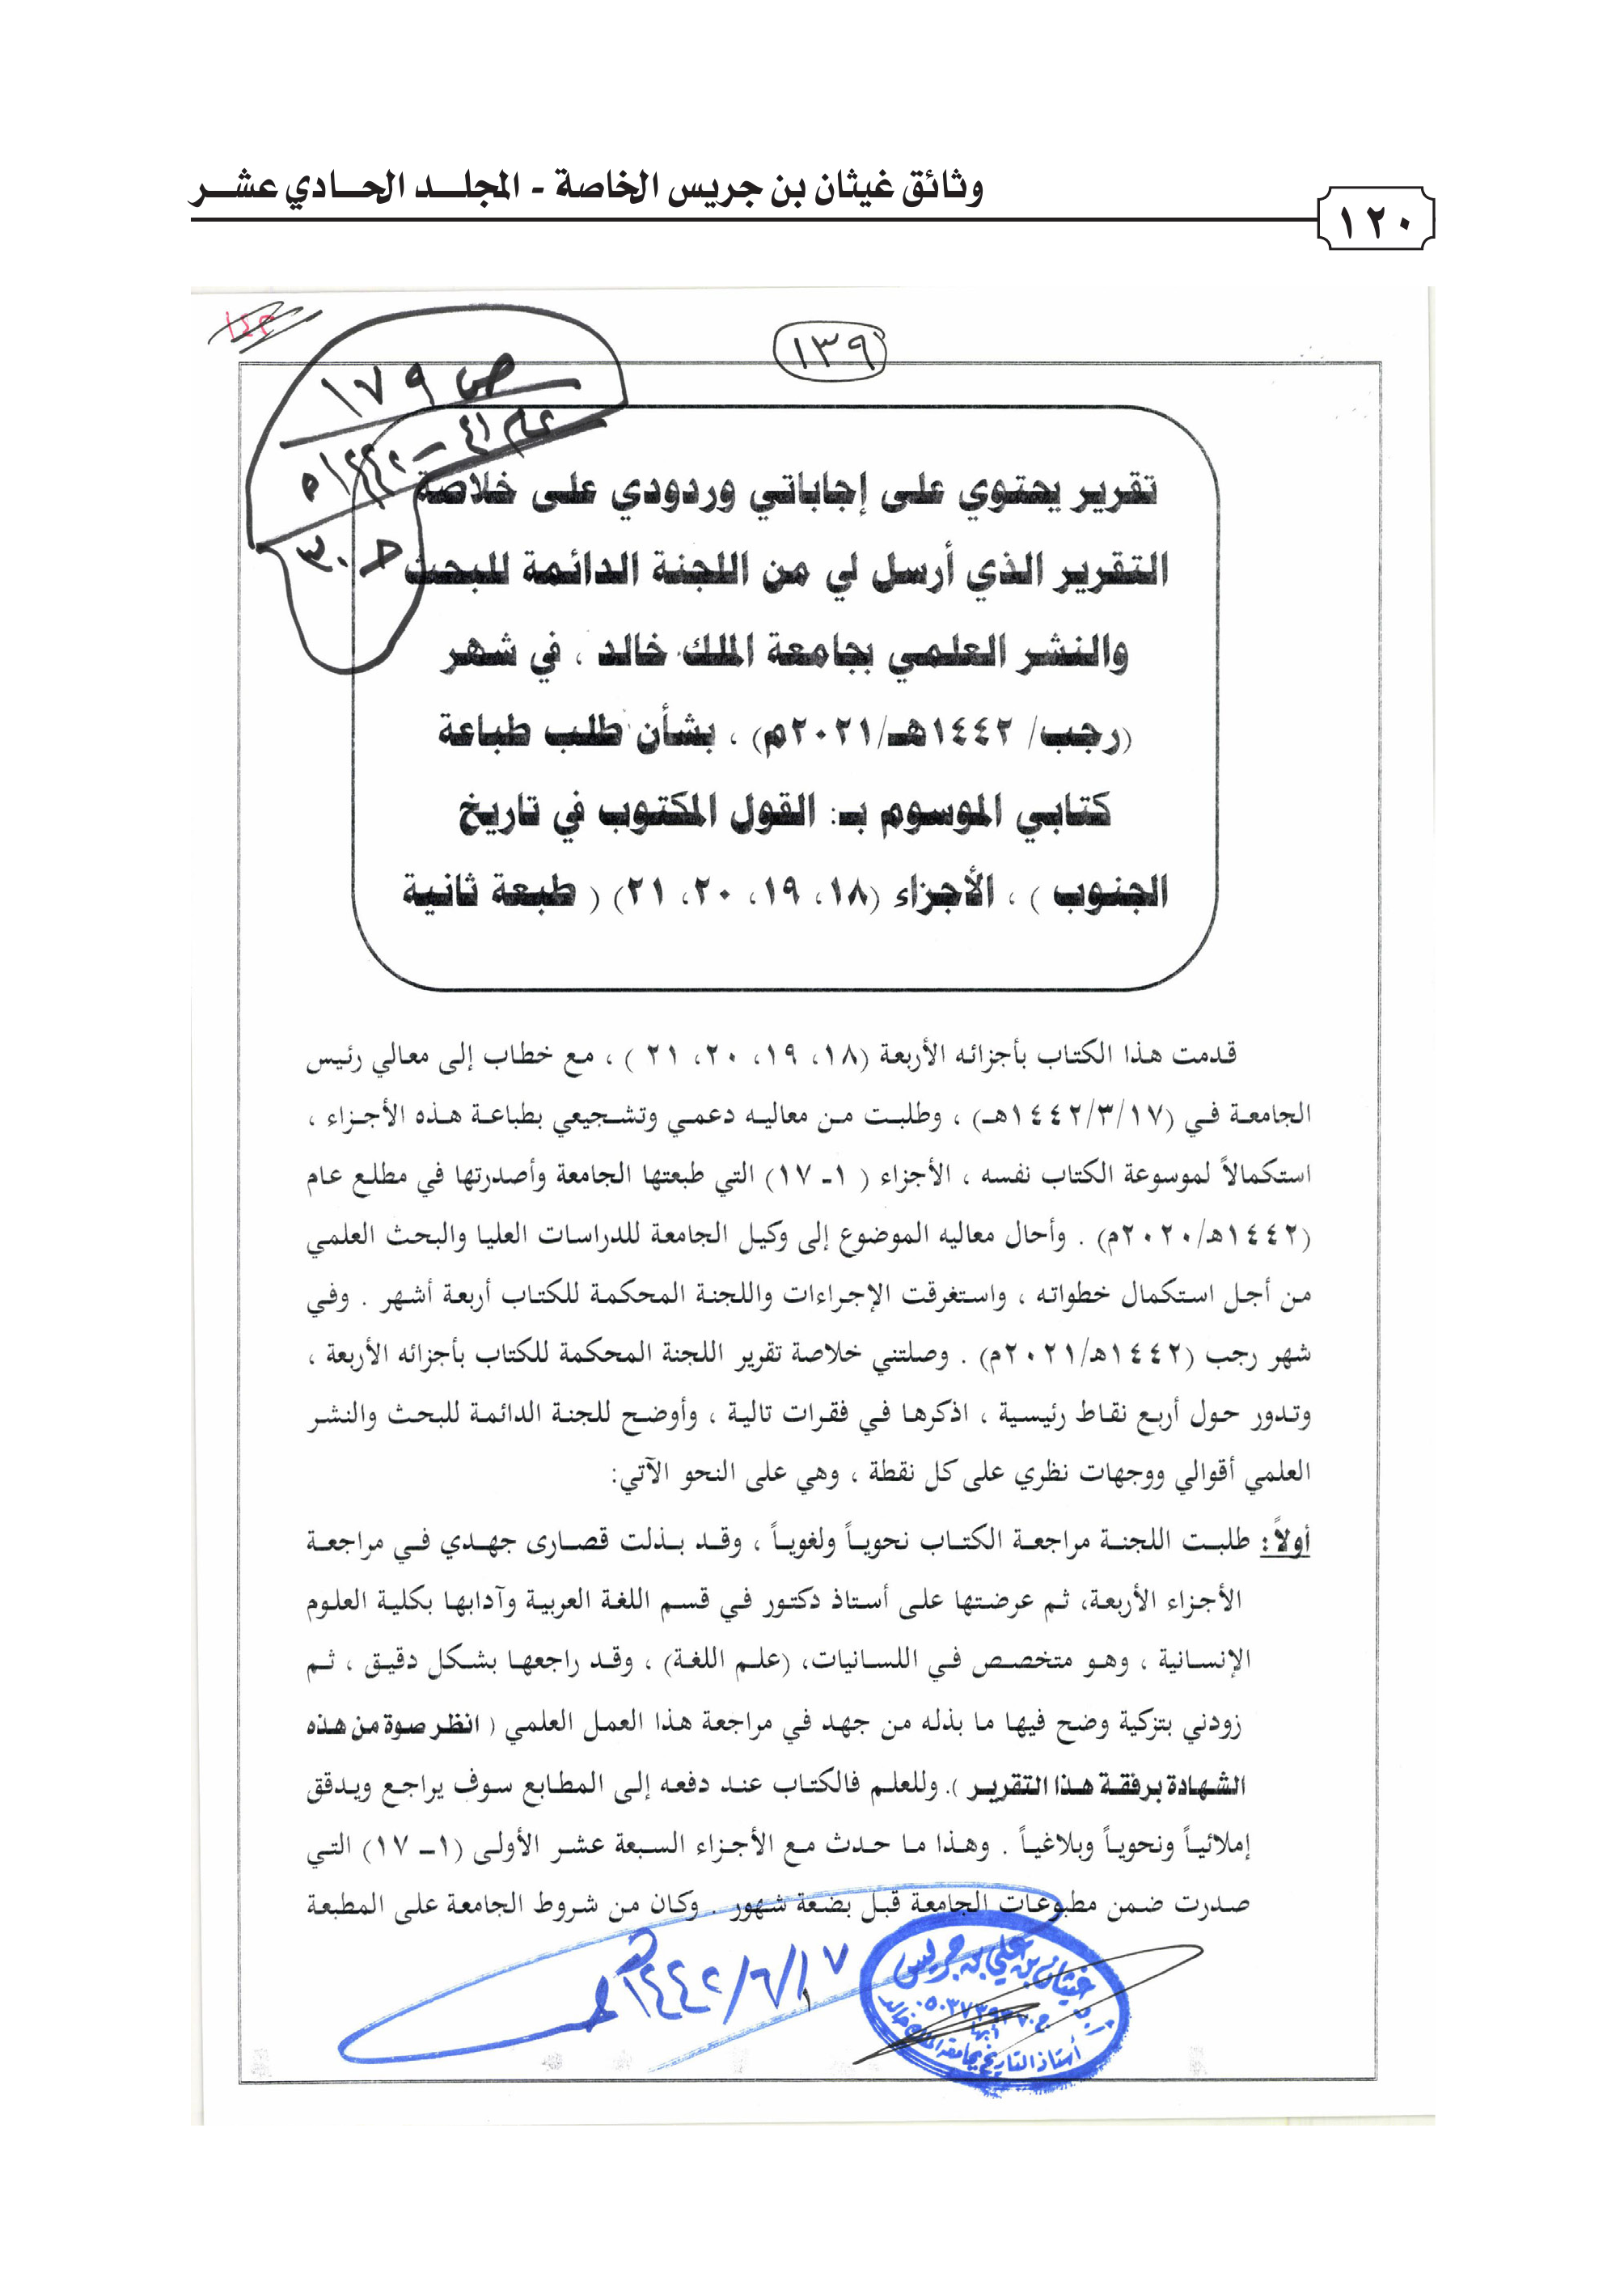 وثائق غيثان بن جريس الخاصة - المجلــد الحــادي عشــر
١٢٠
١٣٩
ص ١٧٩
عام ٤١ - ١٤٤٢هـ
حـ ٣٠
تقرير يحتوي على إجاباتي وردودي على خلاصة
التقرير الذي أرسل لي من اللجنة الدائمة للبحث
والنشر العلمي بجامعة الملك خالد ، في شهر
(رجب/ ١٤٤٢هـ/٢٠٢١م) ، بشأن طلب طباعة
كتابي الموسوم بـ: القول المكتوب في تاريخ
الجنوب ) ، الأجزاء (١٨، ١٩، ٢٠، ٢١) ( طبعة ثانية
قدمت هذا الكتاب بأجزائه الأربعة (١٨، ١٩، ٢٠، ٢١ ) ، مع خطاب إلى معالي رئيس
الجامعة في (١٤٤٢/٣/١٧هـ) ، وطلبت من معاليه دعمي وتشجيعي بطباعة هذه الأجزاء ،
استكمالاً لموسوعة الكتاب نفسه ، الأجزاء ( ١ـ ١٧) التي طبعتها الجامعة وأصدرتها في مطلع عام
(١٤٤٢هـ/٢٠٢٠م) . وأحال معاليه الموضوع إلى وكيل الجامعة للدراسات العليا والبحث العلمي
من أجل استكمال خطواته ، واستغرقت الإجراءات واللجنة المحكمة للكتاب أربعة أشهر . وفي
شهر رجب (١٤٤٢هـ/٢٠٢١م) . وصلتني خلاصة تقرير اللجنة المحكمة للكتاب بأجزائه الأربعة ،
وتدور حول أربع نقاط رئيسية ، اذكرها في فقرات تالية ، وأوضح للجنة الدائمة للبحث والنشر
العلمي أقوالي ووجهات نظري على كل نقطة ، وهي على النحو الآتي:
أولاً: طلبت اللجنة مراجعة الكتاب نحوياً ولغوياً ، وقد بذلت قصارى جهدي في مراجعة
الأجزاء الأربعة، ثم عرضتها على أستاذ دكتور في قسم اللغة العربية وآدابها بكلية العلوم
الإنسانية ، وهو متخصص في اللسانيات، (علم اللغة) ، وقد راجعها بشكل دقيق ، ثم
زودني بتزكية وضح فيها ما بذله من جهد في مراجعة هذا العمل العلمي ( انظر صوة من هذه
الشهادة برفقة هذا التقرير ). وللعلم فالكتاب عند دفعه إلى المطابع سوف يراجع ويدقق
إملائياً ونحوياً وبلاغياً . وهذا ما حدث مع الأجزاء السبعة عشر الأولى (١ـ ١٧) التي
صدرت ضمن مطبوعات الجامعة قبل بضعة شهور . وكان من شروط الجامعة على المطبعة
١٤٤٢/٦/١٧هـ
١
غيثان بن علي بن جريس
أبها
أستاذ التاريخ بجامعة الملك خالد